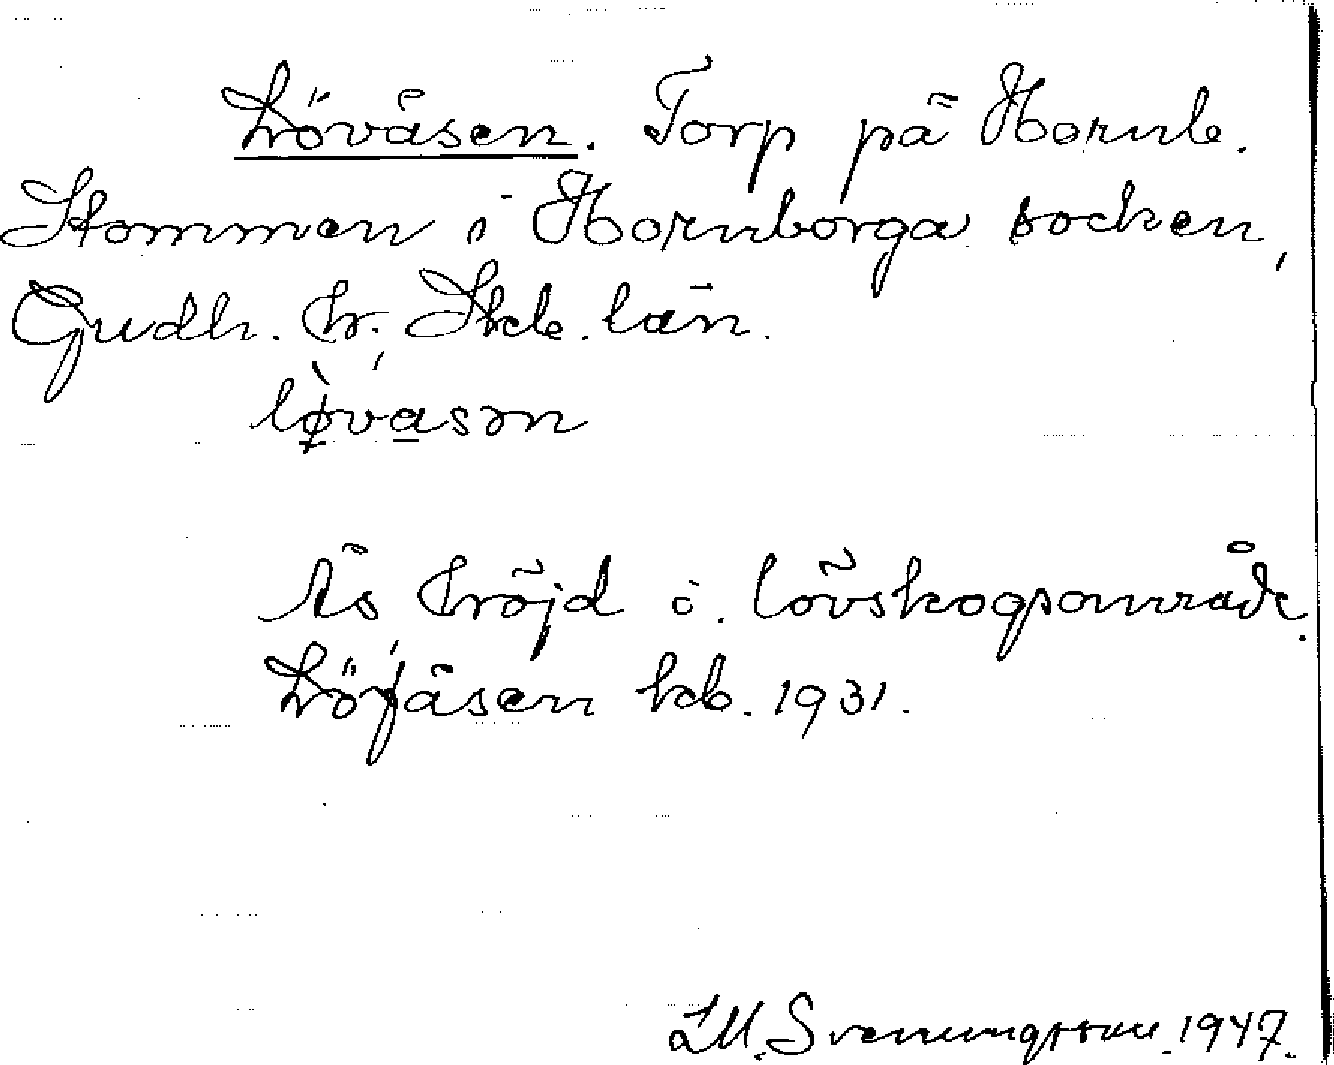 Lövåsen. Torp på Hornb.
Stommen i Hornborga socken,
Gudh. hr, Skb. län.
lø̀vasən
Ås (höjd i lövskogsområde.
Löfåsen kb. 1931.
LM. Svenungsson. 1947.